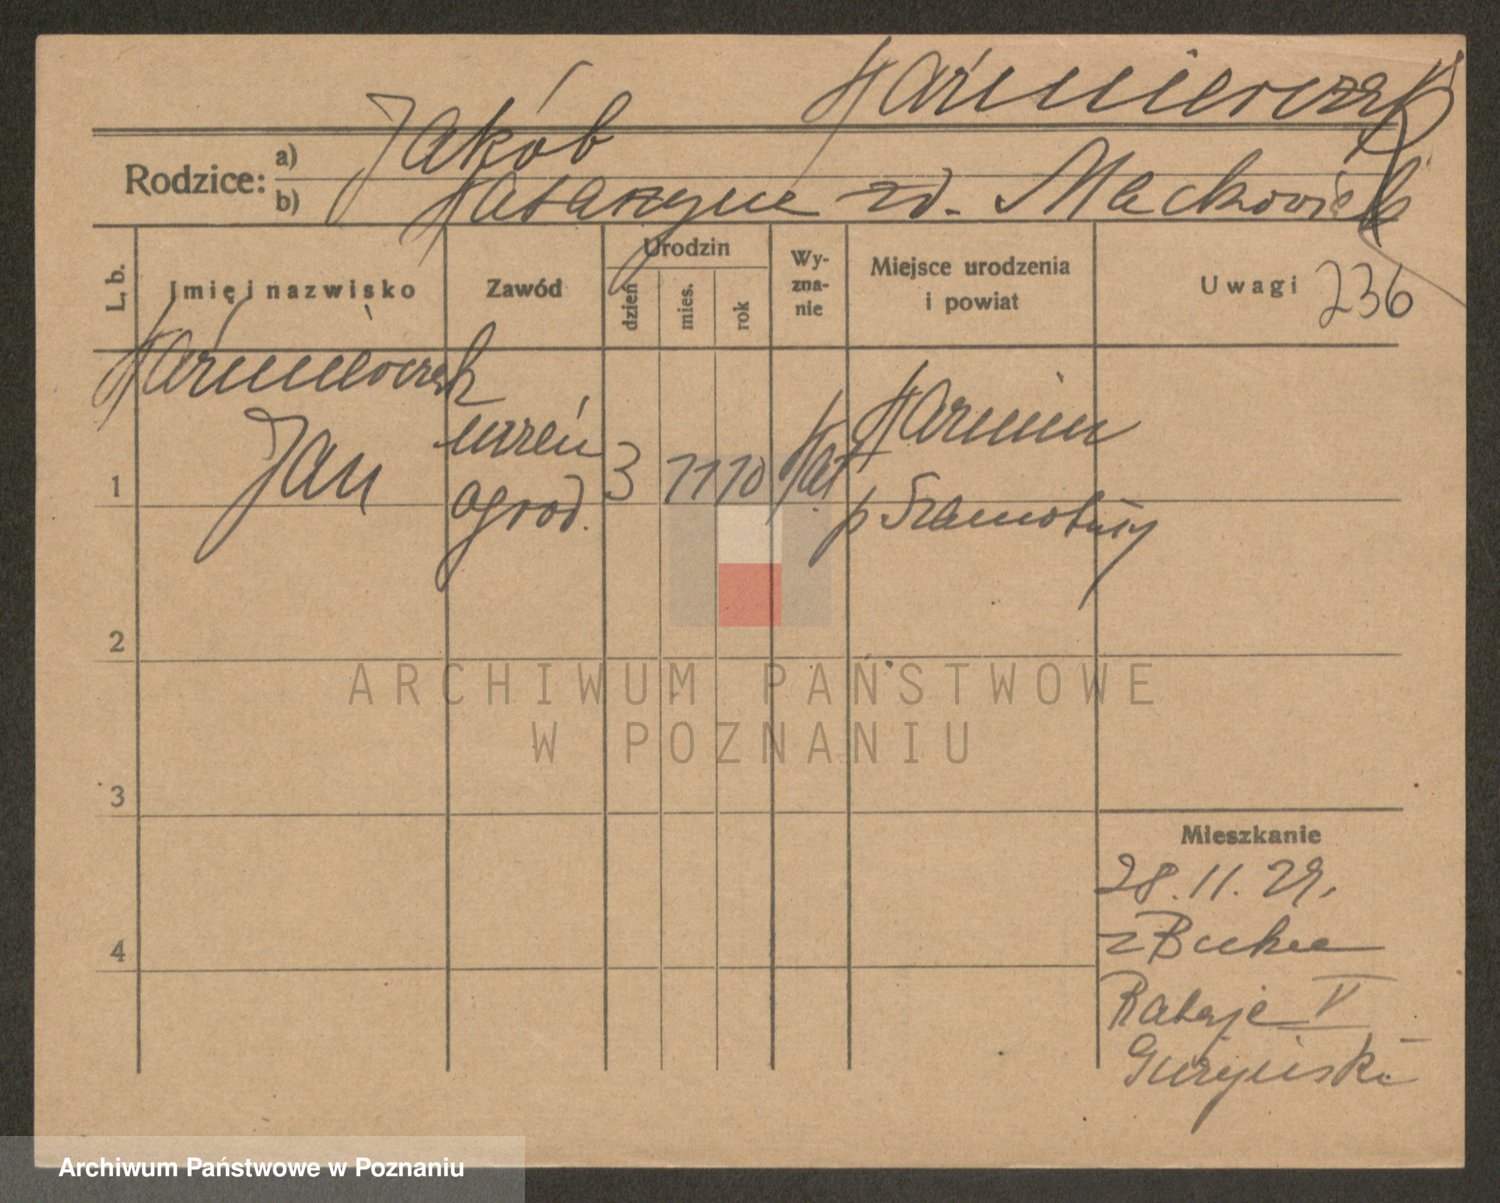 Kaźmierczak
Rodzice:
a) Jakób
b) Katarzyna zd. Maćkowiak
L. b.
Imię i nazwisko
Zawód
Urodzin
dzień
mies.
rok
Wy-
zna-
nie
Miejsce urodzenia
i powiat
Uwagi 236
Kaźmierczak
Jan
uczeń
ogrod.
1
3 11 10
Kat
Kaźmierz
p Szamotuły
2
3
4
Mieszkanie
28.11.29.
z Buku
Rataje V
ARCHIWUM PAŃSTWOWE
W POZNANIU
Archiwum Państwowe w Poznaniu